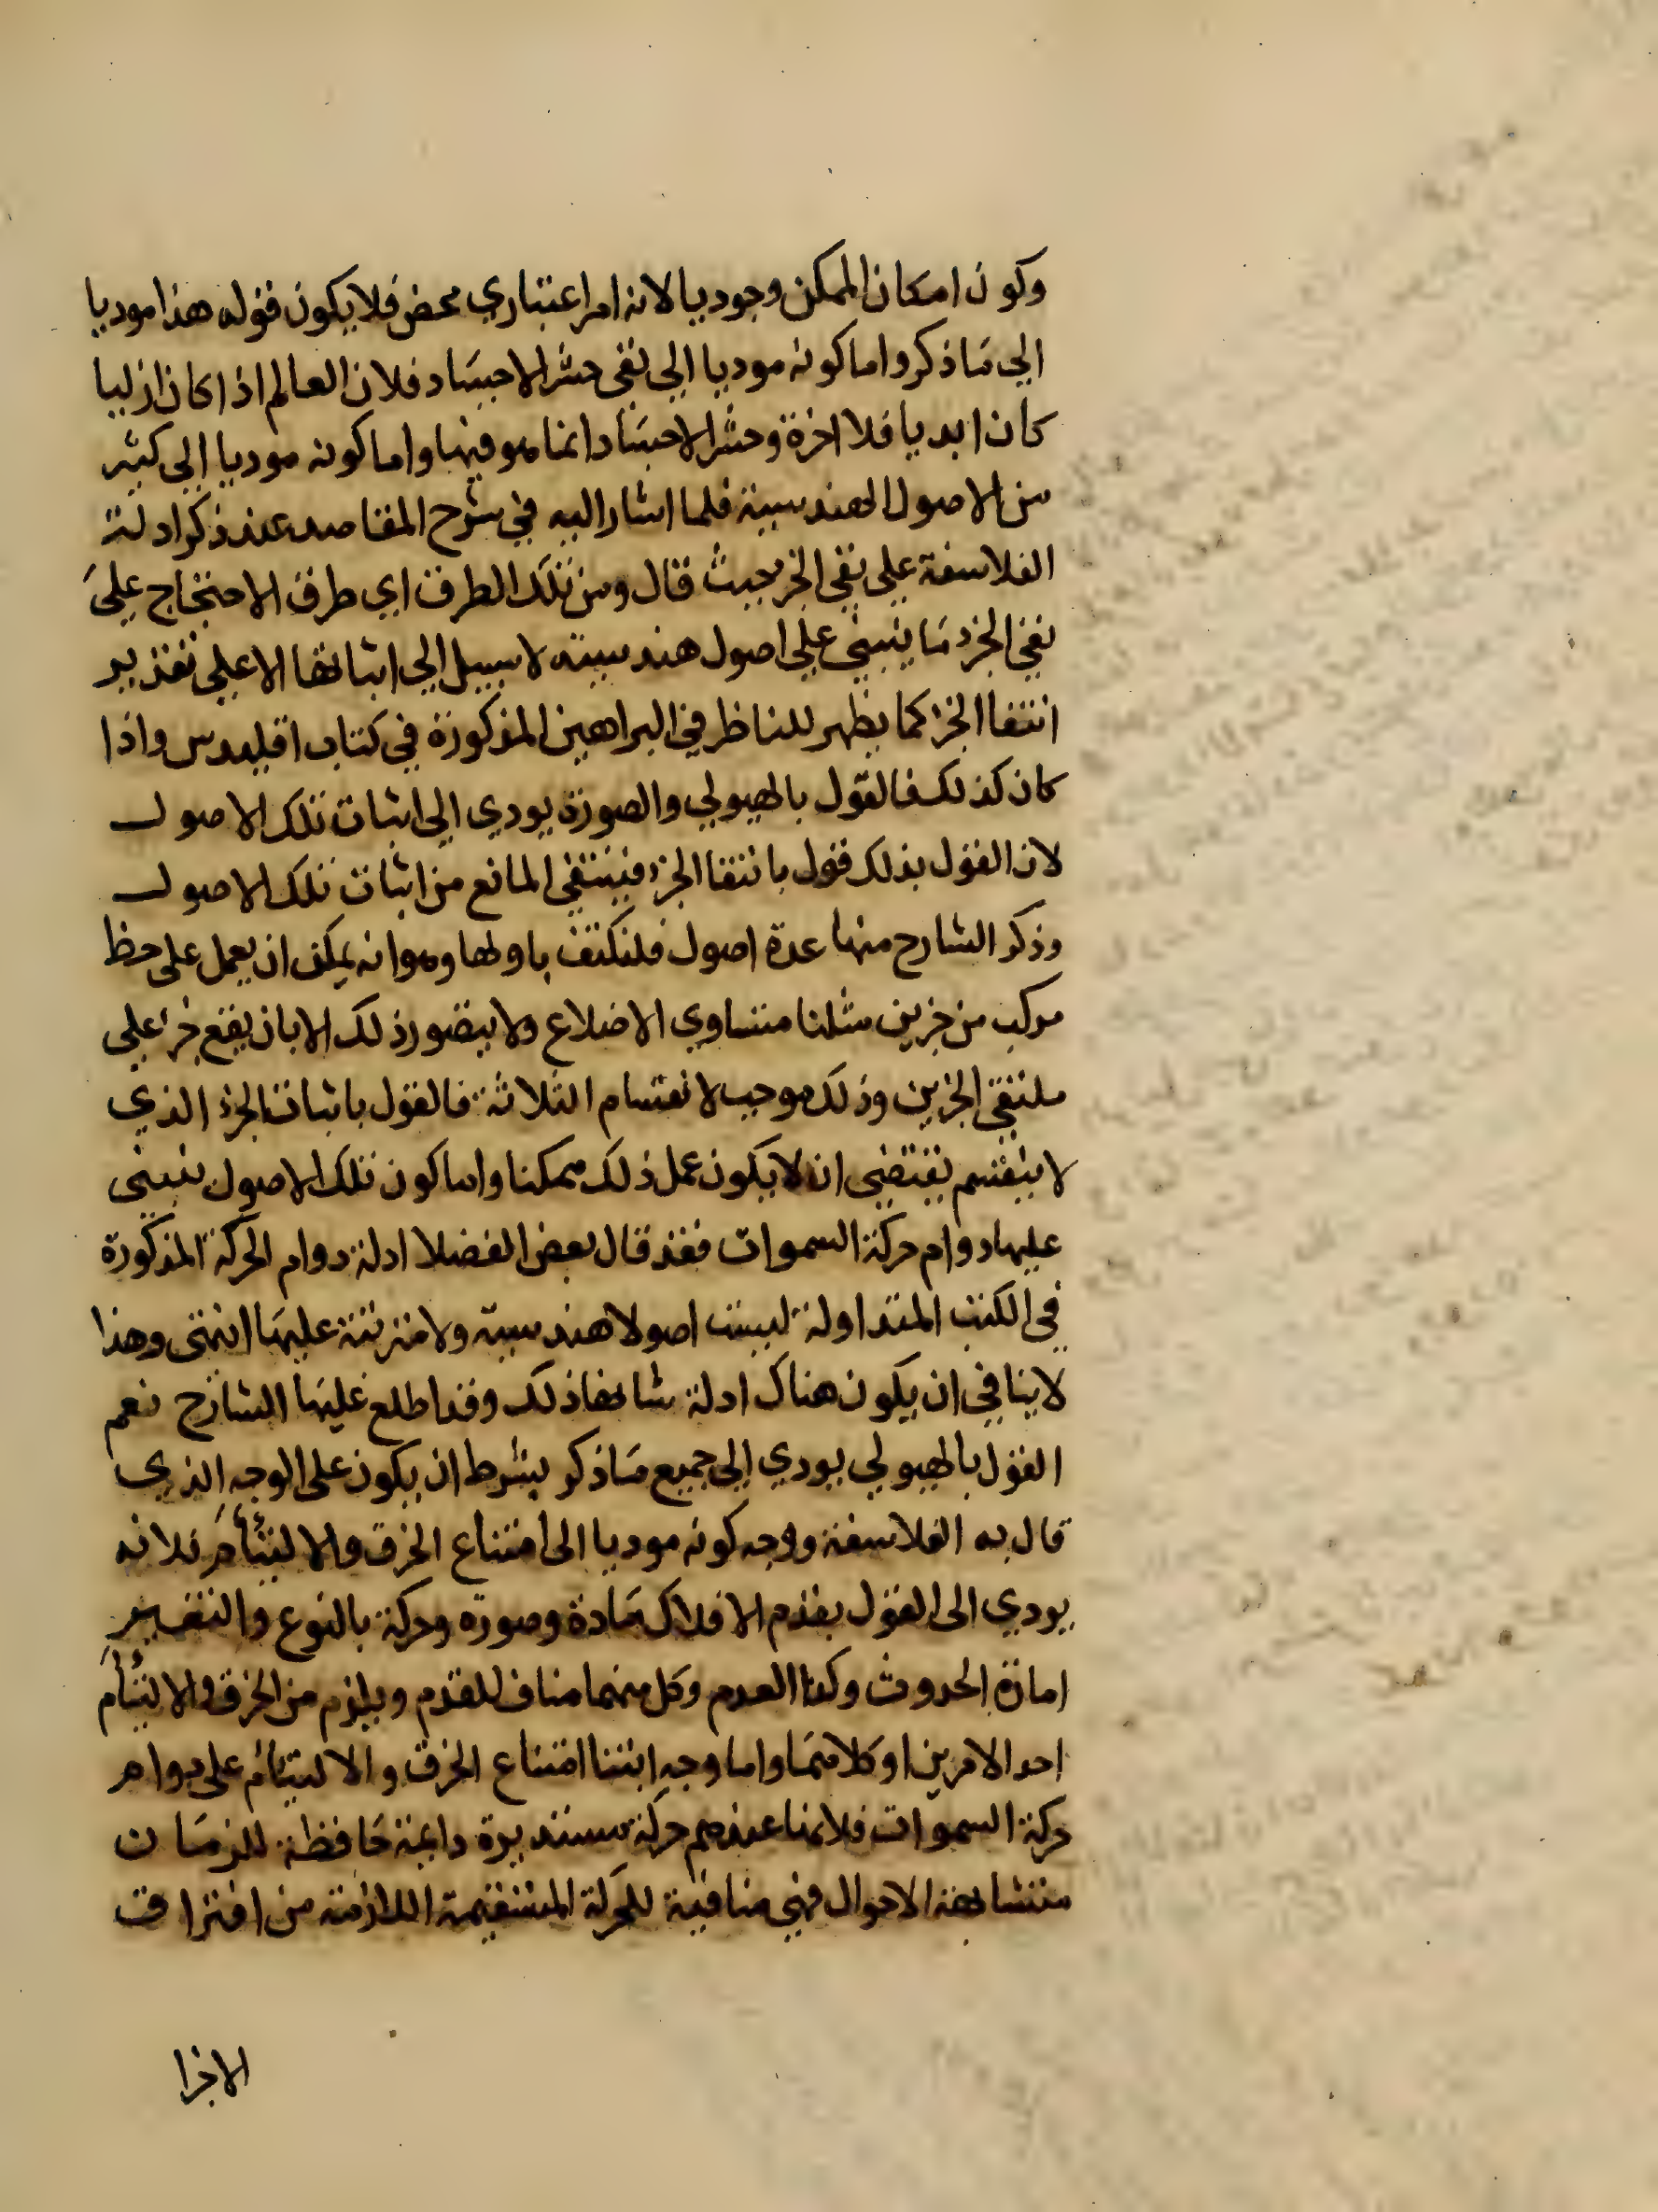 وكون امكان الممكن وجوديا لانه امر اعتباري محض فلا يكون قوله هذا موديا
الي ما ذكر واما كونه موديا الي نفي حشر الاجساد فلان العالم اذا كان ازليا
كان ابديا فلا اخرة وحشر الاجساد انما هو فيها واما كونه موديا الي كثير
من الاصول الهندسية فلما اشار اليه في شرح المقاصد عند ذكر ادلة
الفلاسفة علي نفي الجز حيث قال ومن تلك الطرق اي طرق الاحتجاج علي
نفي الجزء ما ينبني علي اصول هندسية لا سبيل الي اثباتها الا علي تقدير
انتفا الجزء كما يظهر للناظر في البراهين المذكورة في كتاب اقليدس واذا
كان كذلك فالقول بالهيولي والصورة يودي الي اثبات تلك الاصول
لان القول بذلك قول بانتفا الجزء فينتفي المانع من اثبات تلك الاصول
وذكر الشارح منها عدة اصول فلنكتف باولها وهو انه يمكن ان يعمل علي خط
مركب من جزين مثلثا متساوي الاضلاع ولا يتصور ذلك الا بان يقع جزء علي
ملتقي الجزين وذلك موجب لانقسام الثلاثة فالقول باثبات الجزء الذي
لا ينقسم يقتضي ان لا يكون عمل ذلك ممكنا واما كون تلك الاصول ينبني
عليها دوام حركة السموات فقد قال بعض الفضلا ادلة دوام الحركة المذكورة
في الكتب المتداولة ليست اصولا هندسية ولا مترتبة عليها انتهى وهذا
لا ينافي ان يكون هناك ادلة شانها ذلك وقد اطلع عليها الشارح نعم
القول بالهيولي يودي الي جميع ما ذكر بشرط ان يكون على الوجه الذي
قال به الفلاسفة ووجه كونه موديا الى امتناع الخرق والالتئام فلانه
يودي الى القول بقدم الافلاك بمادة وصورة وحركة بالنوع والتغيير
امارة الحدوث وكذا العدم وكل منهما مناف للقدم ويلزم من الخرق والالتئام
احد الامرين او كلاهما واما وجه ابتنا امتناع الخرق والالتيام على دوام
حركة السموات فلانها عندهم حركة مستديرة دايمة حافظة للزمان
متشابهة الاحوال فهي منافية للحركة المستقيمة اللازمة من افتراق
الاجزا